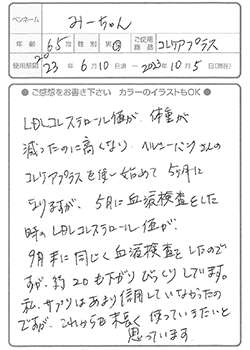 ペンネーム みーちゃん
年齢 65才 性別 男・女 ご使用商品 コレケアプラス
使用期間 2023年6月10日頃 〜 2023年10月5日(現在)
●ご感想をお書き下さい カラーのイラストもOK●
LDLコレステロール値が、体重が
減ったのに高くなり ベルーハンさんの
コレケアプラスを使い始めて5ヶ月に
なりますが、5月に血液検査をした
時のLDLコレステロール値が、
9月末に同じく血液検査をしたので
すが、約20も下がりびっくりしています。
私、サプリはあまり信用していなかったの
ですが、これからも末長く使っていきたいと
思っています